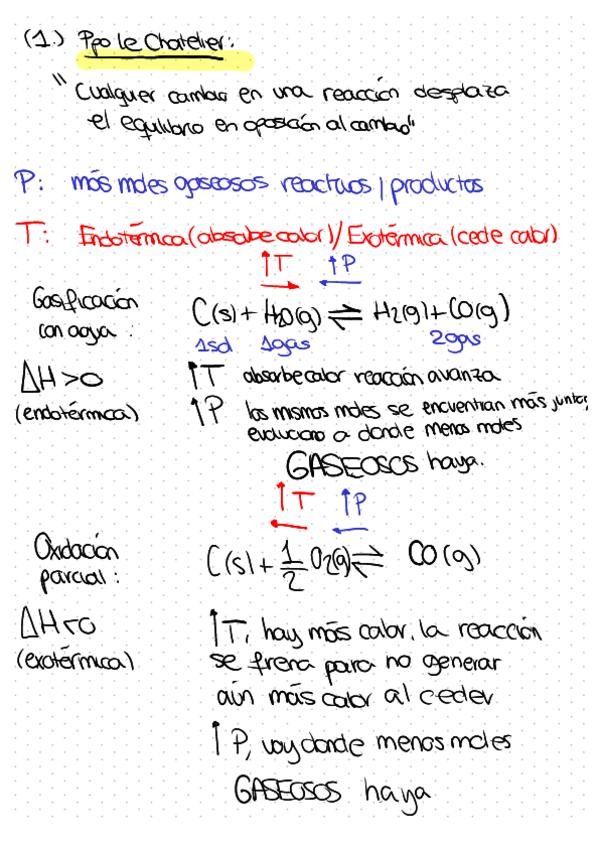 (1.) Ppo le Chatelier:
"Cualquier cambio en una reacción desplaza
el equilibrio en oposición al cambio"
P: más moles gaseosos reactivos / productos
T: Endotérmica (absorbe calor) / Exotérmica (cede calor)
↑T ↑P
Gasificación con agua: C(s) + H2O(g) ⇌ H2(g) + CO(g)
1sol 1gas 2gas
ΔH>0 ↑T absorbe calor reacción avanza
(endotérmica) ↑P los mismos moles se encuentran más juntos,
evoluciono a donde menos moles
GASEOSOS haya.
↑T ↑P
Oxidación parcial: C(s) + 1/2 O2(g) ⇌ CO(g)
ΔH<0 ↑T, hay más calor. la reacción
(exotérmica) se frena para no generar
aún más calor al ceder
↑P, voy donde menos moles
GASEOSOS haya